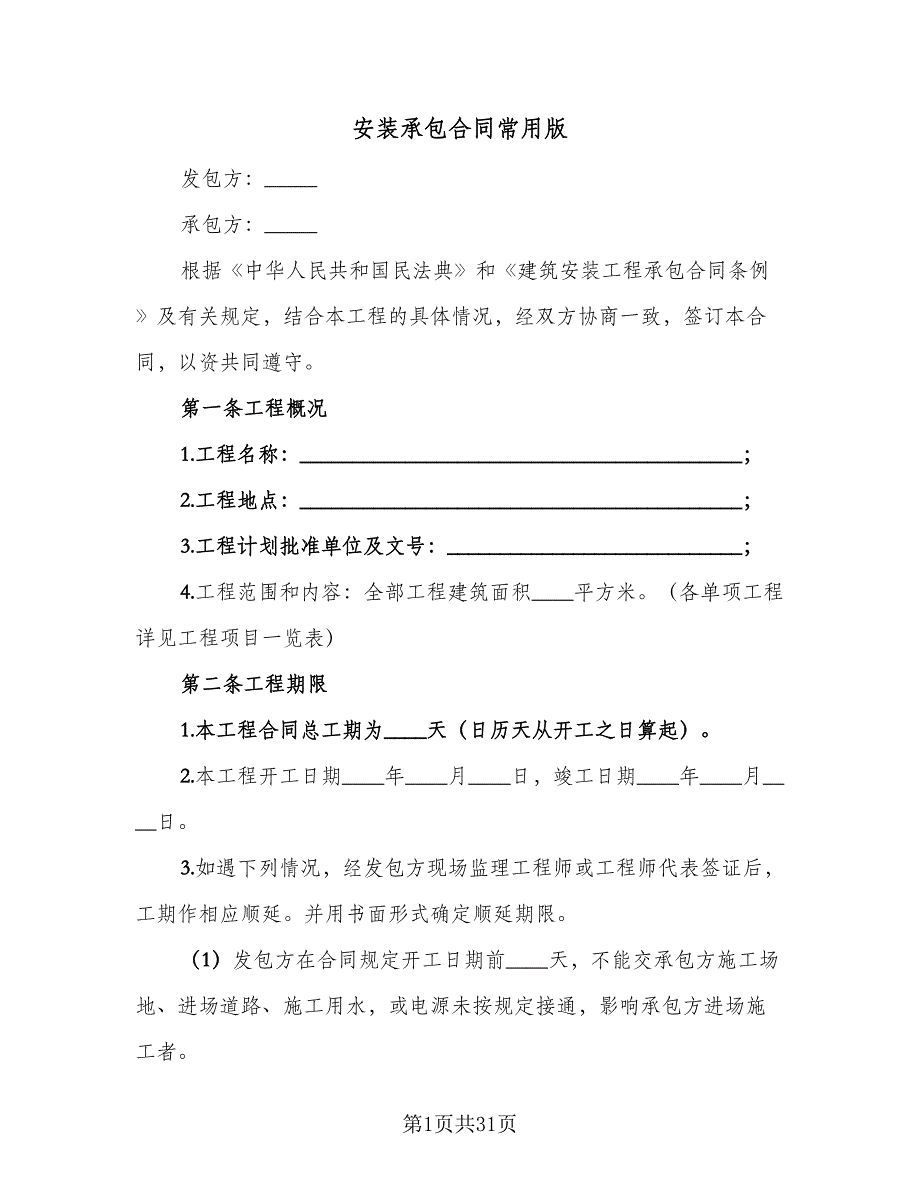 安装承包合同常用版
发包方：_____
承包方：_____
根据《中华人民共和国民法典》和《建筑安装工程承包合同条例
》及有关规定，结合本工程的具体情况，经双方协商一致，签订本合
同，以资共同遵守。
第一条工程概况
1.工程名称：__________________________________________；
2.工程地点：___________________________________________；
3.工程计划批准单位及文号：____________________________；
4.工程范围和内容：全部工程建筑面积____平方米。（各单项工程
详见工程项目一览表）
第二条工程期限
1.本工程合同总工期为____天（日历天从开工之日算起）。
2.本工程开工日期____年____月____日，竣工日期____年____月__
__日。
3.如遇下列情况，经发包方现场监理工程师或工程师代表签证后，
工期作相应顺延。并用书面形式确定顺延期限。
（1）发包方在合同规定开工日期前____天，不能交承包方施工场
地、进场道路、施工用水，或电源未按规定接通，影响承包方进场施
工者。
第1页共31页